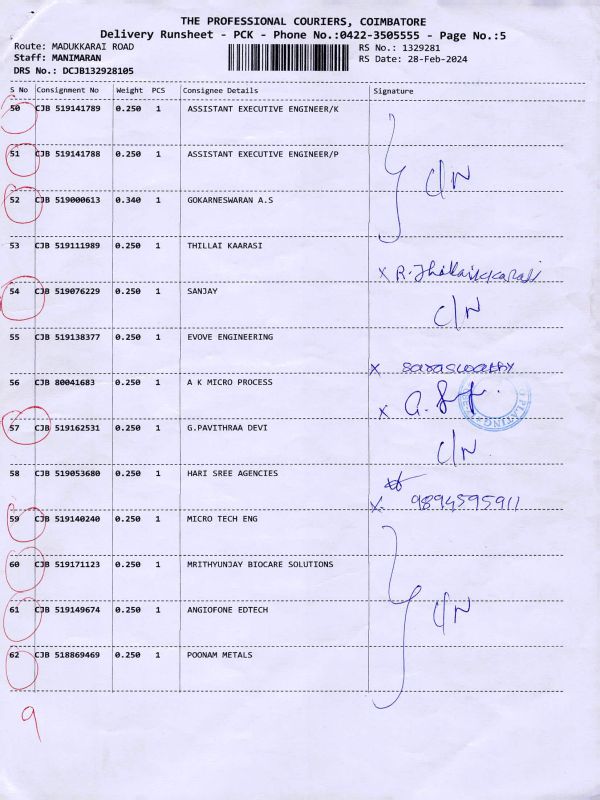 THE PROFESSIONAL COURIERS, COIMBATORE
Delivery Runsheet - PCK - Phone No.:0422-3505555 - Page No.:5
Route: MADUKKARAI ROAD RS No.: 1329281
Staff: MANIMARAN RS Date: 28-Feb-2024
DRS No.: DCJB132928105
S No Consignment No Weight PCS Consignee Details Signature
50 CJB 519141789 0.250 1 ASSISTANT EXECUTIVE ENGINEER/K
51 CJB 519141788 0.250 1 ASSISTANT EXECUTIVE ENGINEER/P C/N
52 CJB 519000613 0.340 1 GOKARNESWARAN A.S
53 CJB 519111989 0.250 1 THILLAI KAARASI X R.Thillaikkarasi
54 CJB 519076229 0.250 1 SANJAY C/N
55 CJB 519138377 0.250 1 EVOVE ENGINEERING X saraswathy
56 CJB 80041683 0.250 1 A K MICRO PROCESS X PLATING
57 CJB 519162531 0.250 1 G.PAVITHRAA DEVI C/N
58 CJB 519053680 0.250 1 HARI SREE AGENCIES X 9894595911
59 CJB 519140240 0.250 1 MICRO TECH ENG
60 CJB 519171123 0.250 1 MRITHYUNJAY BIOCARE SOLUTIONS
61 CJB 519149674 0.250 1 ANGIOFONE EDTECH C/N
62 CJB 518869469 0.250 1 POONAM METALS
9